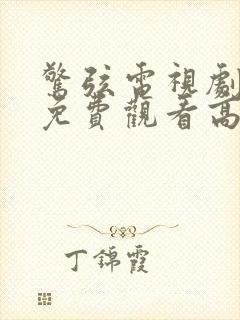 驚弦電視劇
免費觀看高
丁錦霞